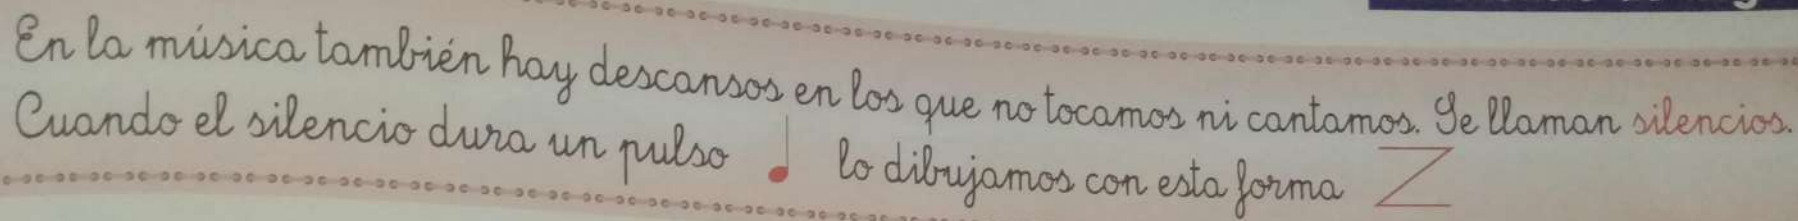 En la música también hay descansos en los que no tocamos ni cantamos. Se llaman silencios.
Cuando el silencio dura un pulso ♩ lo dibujamos con esta forma Z